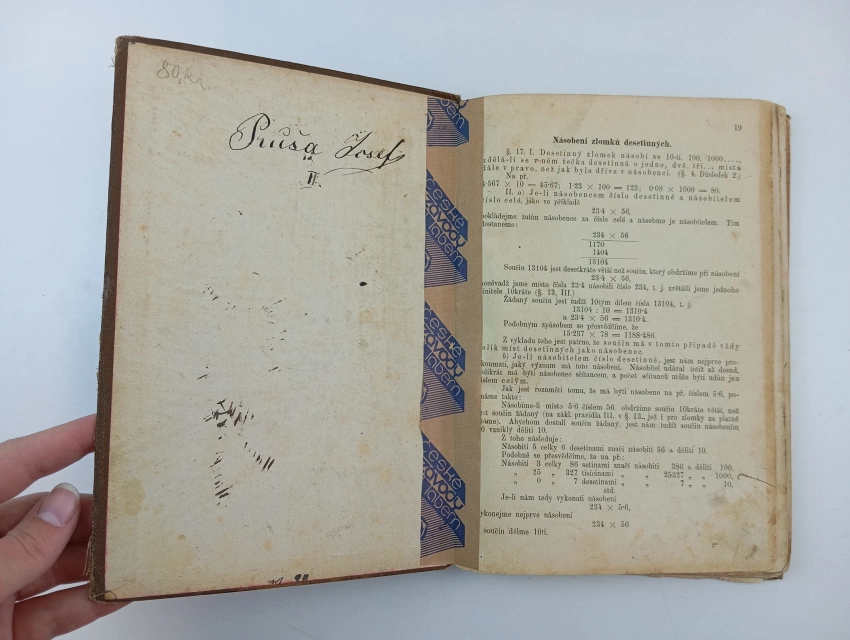 80,-
Průša Josef
II.
české
závody
labem
české
závody
labem
české
závody
labem
19
Násobení zlomků desetinných.
§. 17. I. Desetinný zlomek násobí se 10-ti, 100, 1000....,
dělá-li se v něm tečka desetinná o jedno, dvě, tři... místa
dále v pravo, než jak byla dříve v násobenci. (§. 4. Důsledek 2.)
Na př.
4·567 × 10 = 45·67; 1·23 × 100 = 123; 0·08 × 1000 = 80.
II. a) Je-li násobencem číslo desetinné a násobitelem
číslo celé, jako ve příkladě
23·4 × 56,
pokládejme zatím násobence za číslo celé a násobme je násobitelem. Tím
dostaneme:
234 × 56
1170
1404
13104
Součin 13104 jest desetkráte větší než součin, který obdržíme při násobení
23·4 × 56,
poněvadž jsme místo čísla 23·4 násobili číslo 234, t. j. zvětšili jsme jednoho
činitele 10kráte (§. 13, III.)
Žádaný součin jest tudíž 10tým dílem čísla 13104, t. j.
13104 : 10 = 1310·4
a 23·4 × 56 = 1310·4.
Podobným způsobem se přesvědčíme, že
15·237 × 78 = 1188·486.
Z výkladu toho jest patrno, že součin má v tomto případě vždy
tolik míst desetinných jako násobenec.
b) Je-li násobitelem číslo desetinné, jest nám nejprve pro-
zkoumati, jaký význam má toto násobení. Násobitel udával totiž až dosud,
kolikrát má býti násobenec sčítancem, a počet sčítanců může býti udán jen
číslem celým.
Jak jest rozuměti tomu, že má býti násobeno na př. číslem 5·6, po-
známe takto:
Násobíme-li místo 5·6 číslem 56, obdržíme součin 10kráte větší, než
jest součin žádaný (na zákl. pravidla III. v §. 13., jež i pro zlomky za platné
máme). Abychom dostali součin žádaný, jest nám tudíž součin násobením
56 vzniklý děliti 10.
Z toho následuje:
Násobiti 5 celky 6 desetinami značí násobiti 56 a děliti 10.
Podobně se přesvědčíme, že na př.:
Násobiti 3 celky 86 setinami značí násobiti 386 a děliti 100,
„ 25 „ 327 tisícinami „ „ 25327 „ „ 1000,
„ 0 „ 7 desetinami „ „ 7 „ „ 10,
atd.
Je-li nám tedy vykonati násobení
234 × 5·6,
vykonejme nejprve násobení
234 × 56
součin dělme 10ti.